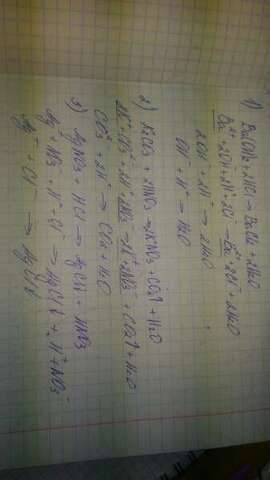 1) Ba(OH)2 + 2HCl → BaCl2 + 2H2O
Ba2+ + 2OH- + 2H+ + 2Cl- → Ba2+ + 2Cl- + 2H2O
2OH- + 2H+ → 2H2O
OH- + H+ → H2O
2) K2CO3 + 2HNO3 → 2KNO3 + CO2↑ + H2O
2K+ + CO32- + 2H+ + 2NO3- → 2K+ + 2NO3- + CO2↑ + H2O
CO32- + 2H+ → CO2↑ + H2O
3) AgNO3 + HCl → AgCl↓ + HNO3
Ag+ + NO3- + H+ + Cl- → AgCl↓ + H+ + NO3-
Ag+ + Cl- → AgCl↓